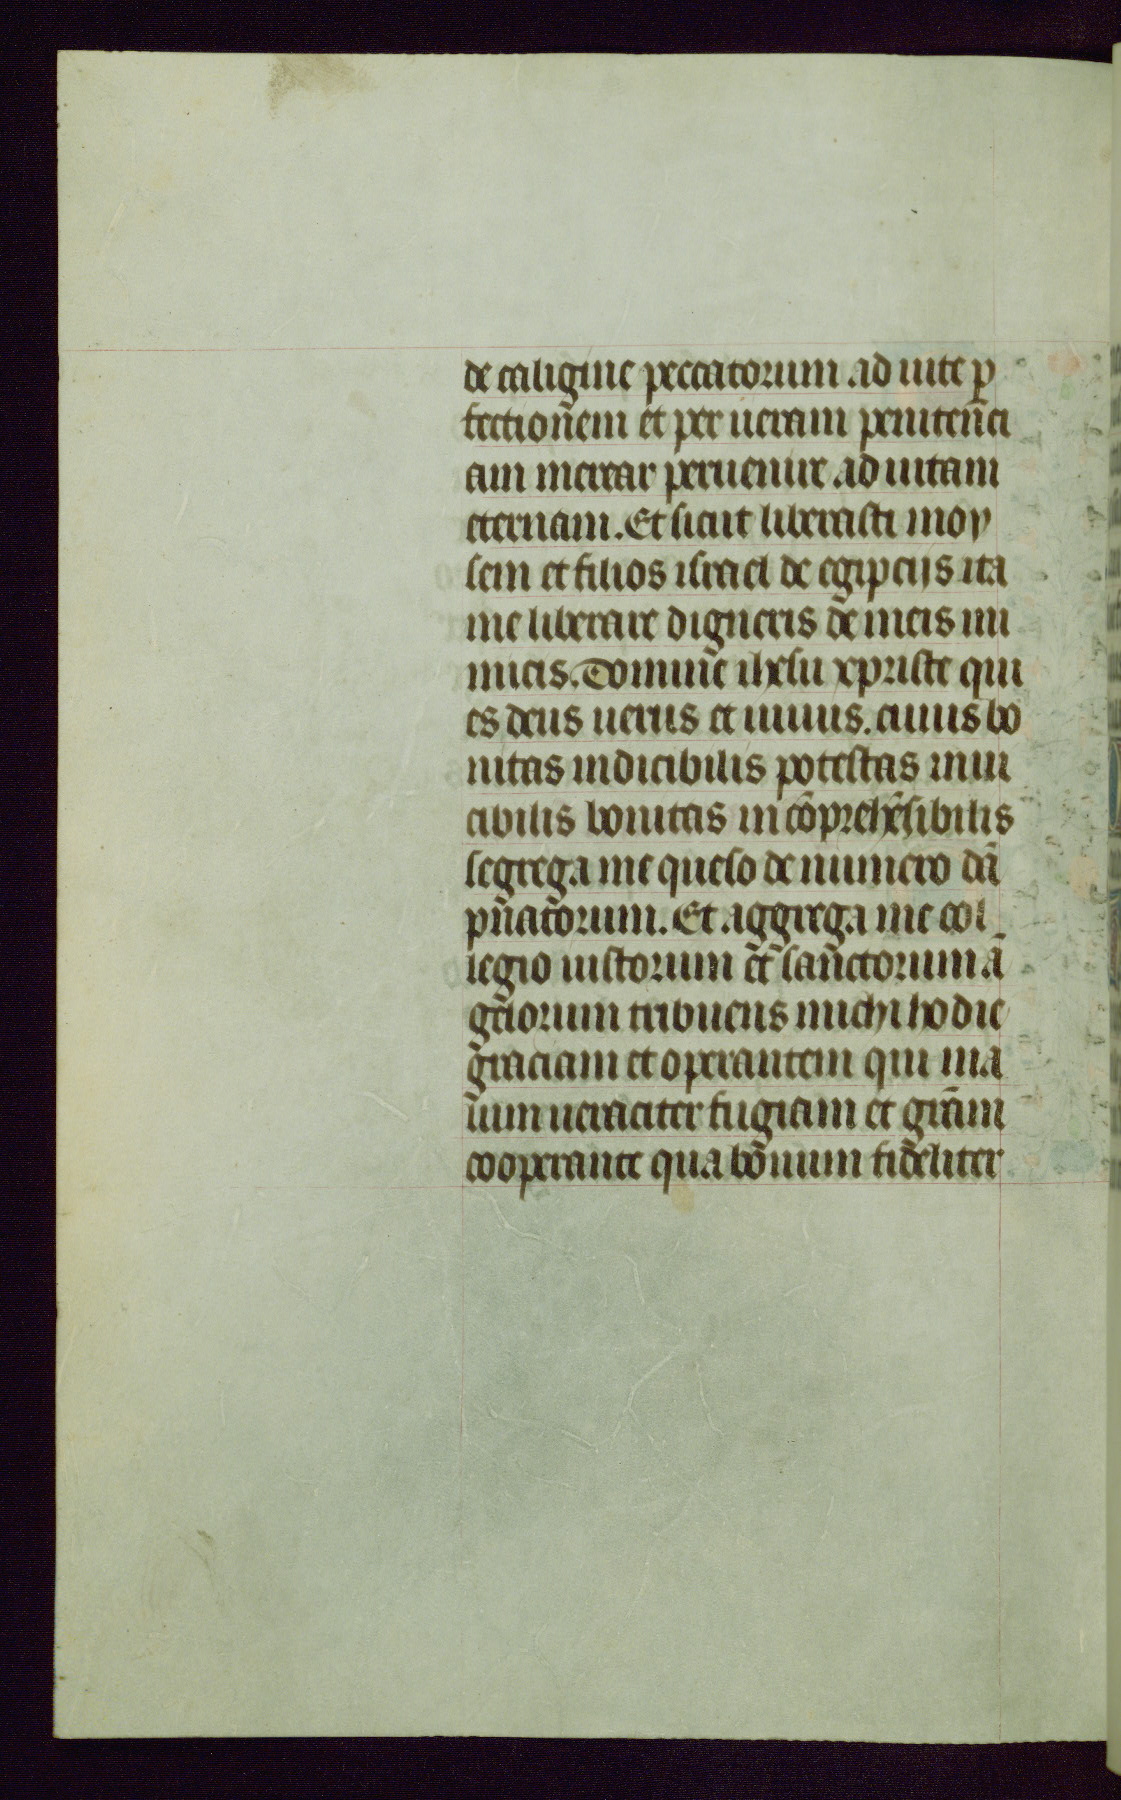 de caligine peccatorum ad uite p
fectionem et per ueram penitenci
am merear peruenire ad uitam
eternam. Et sicut liberasti moy
sem et filios israel de egipcijs ita
me liberare digneris de meis ini
micis. Domine ihesu xpriste qui
es deus uerus et uiuus. cuius bo
nitas indicibilis potestas inui
cibilis bonitas incōprehēsibilis
segrega me queso de numero dā
pnatorum. Et aggrega me col
legio iustorum et sanctorum ā
gelorum tribuens michi hodie
graciam et operantem qui ma
lum ueraciter fugiam et grām
cooperante qua bonum fideliter